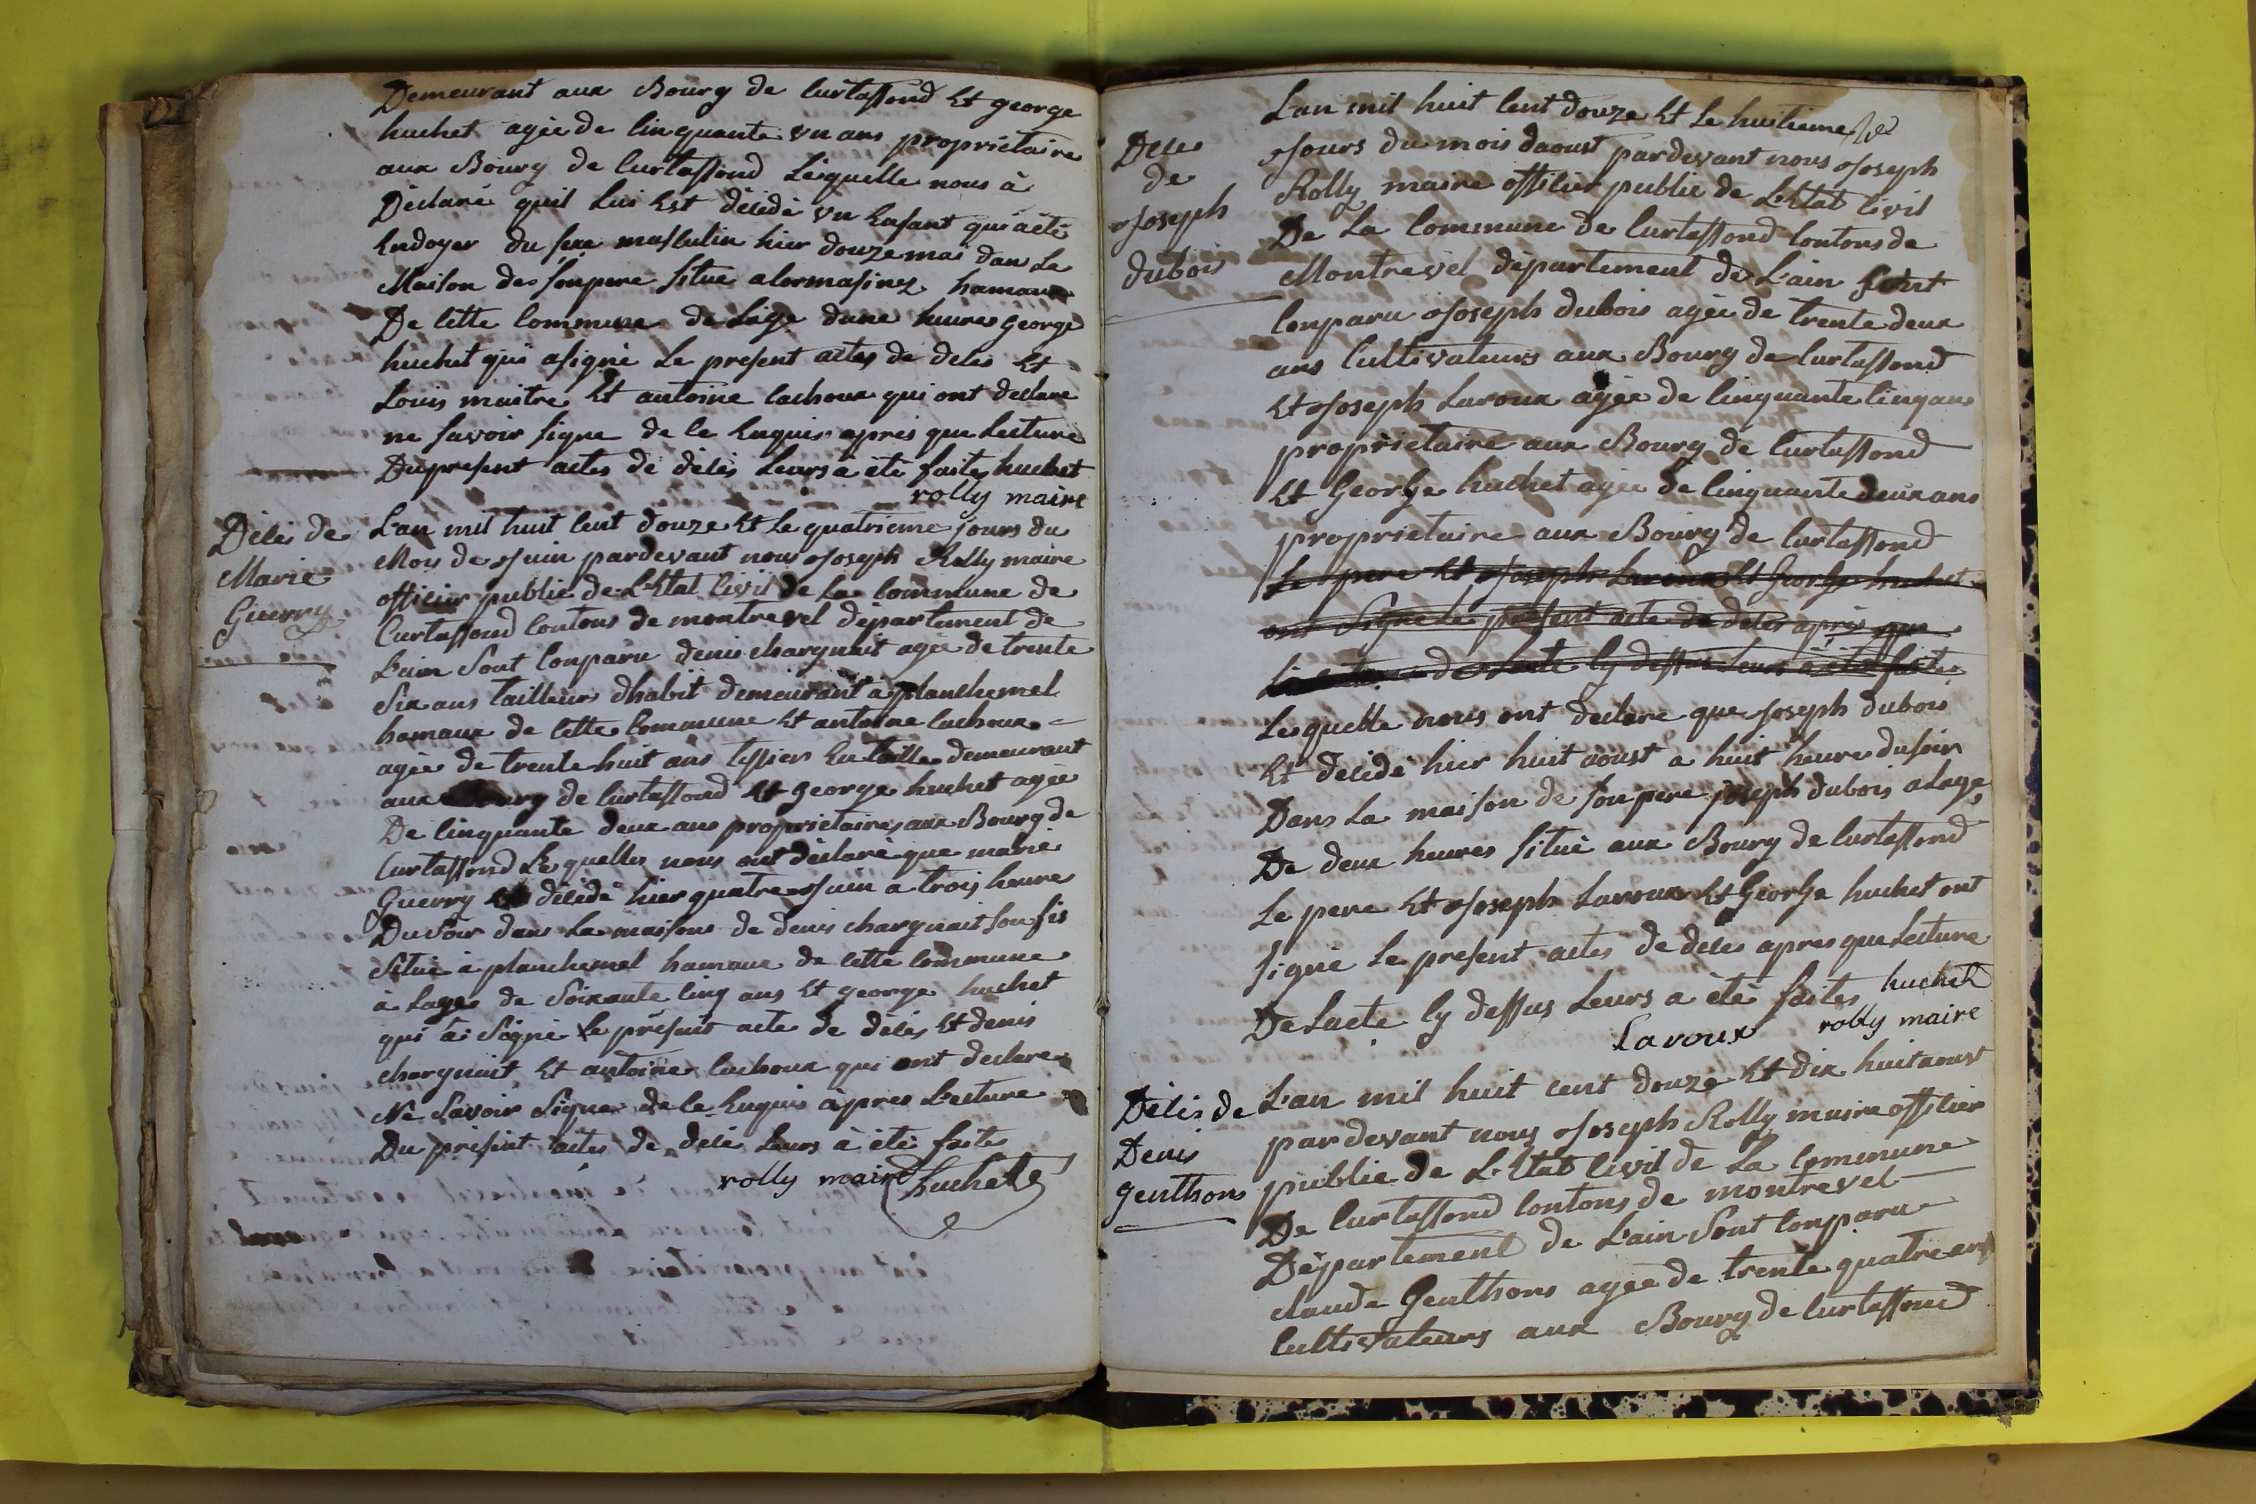 Demeurant aux Bourg de Curtassond Et george
huchet agée de Cinquante un ans propriétaire
aux Bourg de Curtassond Lesquelle nous à
Déclaré quil Lui Est décédé un Enfant qui àété
Endoyer du sexe masculin hier douze mai dans Le
Maison de son pere situe a
De Cette Commune de Lage dune heures george
huchet qui asigné Le present actes de déces Et
Louis maitre Et antoine Cachoux qui ont déclare
ne savoir signe de Ce Enquis apres que Lecture
Du present actes de décés Leurs a été faites huchet
rolly maire
Décés de
Marie
Guerry
L'an mil huit Cent douze Et Le quatrieme jours du
Mois de Juin pardevant nous Joseph Rolly maire
officier public de L'Etat Civil de La Commune de
Curtassond Contons de montrevel département de
L'ain Sont Conparu denis chargnait agée de trente
Six ans tailleurs dhabit demeurant a planchemel
hamaux de Cette Commune Et antoine Cachoux
agée de trente huit ans tissier En toille demeurant
aux Bourg de Curtassond Et george huchet agée
De Cinquante deux ans propriétaires aux Bourg de
Curtassond Lesquelles nous ont déclaré que marie
Guerry Est décédé hier quatre Juin a trois heure
Du Soir dans La maisons de denis chargnait son fis
Situé à planchemel hamaux de Cette Commune
à Lages de Soixante Cinq ans Et george huchet
qui à Signé Le présent acte de décés Et denis
chargnait Et antoine Cachoux qui ont declare
Ne Savoir Signer de Ce Enquis apres Lecture
Du présent actes de décés Leurs à été faite
rolly maire huchet
Déces
de
Joseph
dubois
L'an mil huit Cent douze Et Le huitieme
Jours du mois daoust pardevant nous Joseph
Rolly maire officier public de L'Etat Civil
De La Commune de Curtassond Contons de
Montrevel département de L'ain Sont
Conparu Joseph dubois agée de trente deux
ans Cultivateurs aux Bourg de Curtassond
Et Joseph Laroux agée de Cinquante Cinq ans
propriétaire aux Bourg de Curtassond
Et George huchet agée de Cinquante deux ans
propriétaire aux Bourg de Curtassond
Le pere Et Joseph Laroux Et George huchet
ont Signé Le présent acte de déces après que
Lecture de Lacte Cy dessus Leurs a été faite
Lesquelle nous ont declaré que Joseph dubois
Et décédé hier huit aoust a huit heure du soir
Dans La maison de son pere joseph dubois a Lage
De deux heures situé aux Bourg de Curtassond
Le pere Et Joseph Laroux Et George huchet ont
signé Le present actes de déces apres que Lecture
De Lacte Cy dessus Leurs a été faites huchet
Laroux rolly maire
Décés de
Denis
genthons
L'an mil huit cent douze Et dix huit aoust
pardevant nous Joseph Rolly maire officier
public de L'Etat Civil de La Commune
De Curtassond Contons de montrevel
Département de L'ain Sont Conparu
claude Genthons agée de trente quatre ans
Cultivateurs aux Bourg de Curtassond